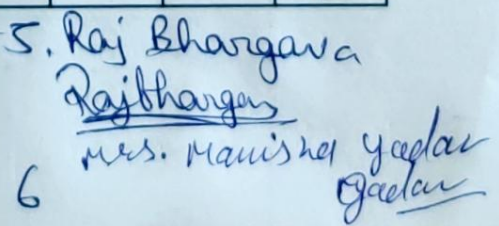 5. Raj Bhargava
Rajbhargav
Mrs. Manisha Yadav
6 Yadav